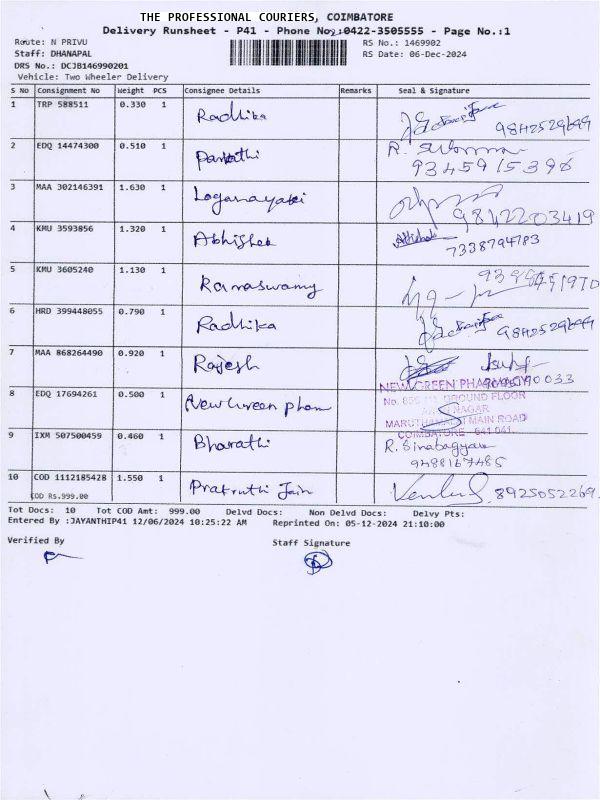 THE PROFESSIONAL COURIERS, COIMBATORE
Delivery Runsheet - P41 - Phone No.:0422-3505555 - Page No.:1
Route: N PRIVU
RS No.: 1469902
Staff: DHANAPAL
RS Date: 06-Dec-2024
DRS No.: DCJB146990201
Vehicle: Two Wheeler Delivery
S No Consignment No Weight PCS Consignee Details Remarks Seal & Signature
1 TRP 588511 0.330 1 Radhika 9842529699
2 EDQ 14474300 0.510 1 Parvathi R.
9345915396
3 MAA 302146391 1.630 1 Loganayaki 9842203419
4 KMU 3593856 1.320 1 Abhishek Abhishek
7338794783
5 KMU 3605240 1.130 1 Ramaswamy
6 HRD 399448055 0.790 1 Radhika 9842529699
7 MAA 868264490 0.920 1 Rajesh
8 EDQ 17694261 0.500 1 New Green pham NEW GREEN PHARMACY
GROUND FLOOR
NAGAR
MARUTHAMALAI MAIN ROAD
COIMBATORE - 641 041.
9 IXM 507500459 0.460 1 Bharathi R.
9488167485
10 COD 1112185428 1.550 1 Pratruthi Jain 8925052269
COD Rs.999.00
Tot Docs: 10 Tot COD Amt: 999.00 Delvd Docs: Non Delvd Docs: Delvy Pts:
Entered By :JAYANTHIP41 12/06/2024 10:25:22 AM Reprinted On: 05-12-2024 21:10:00
Verified By
Staff Signature